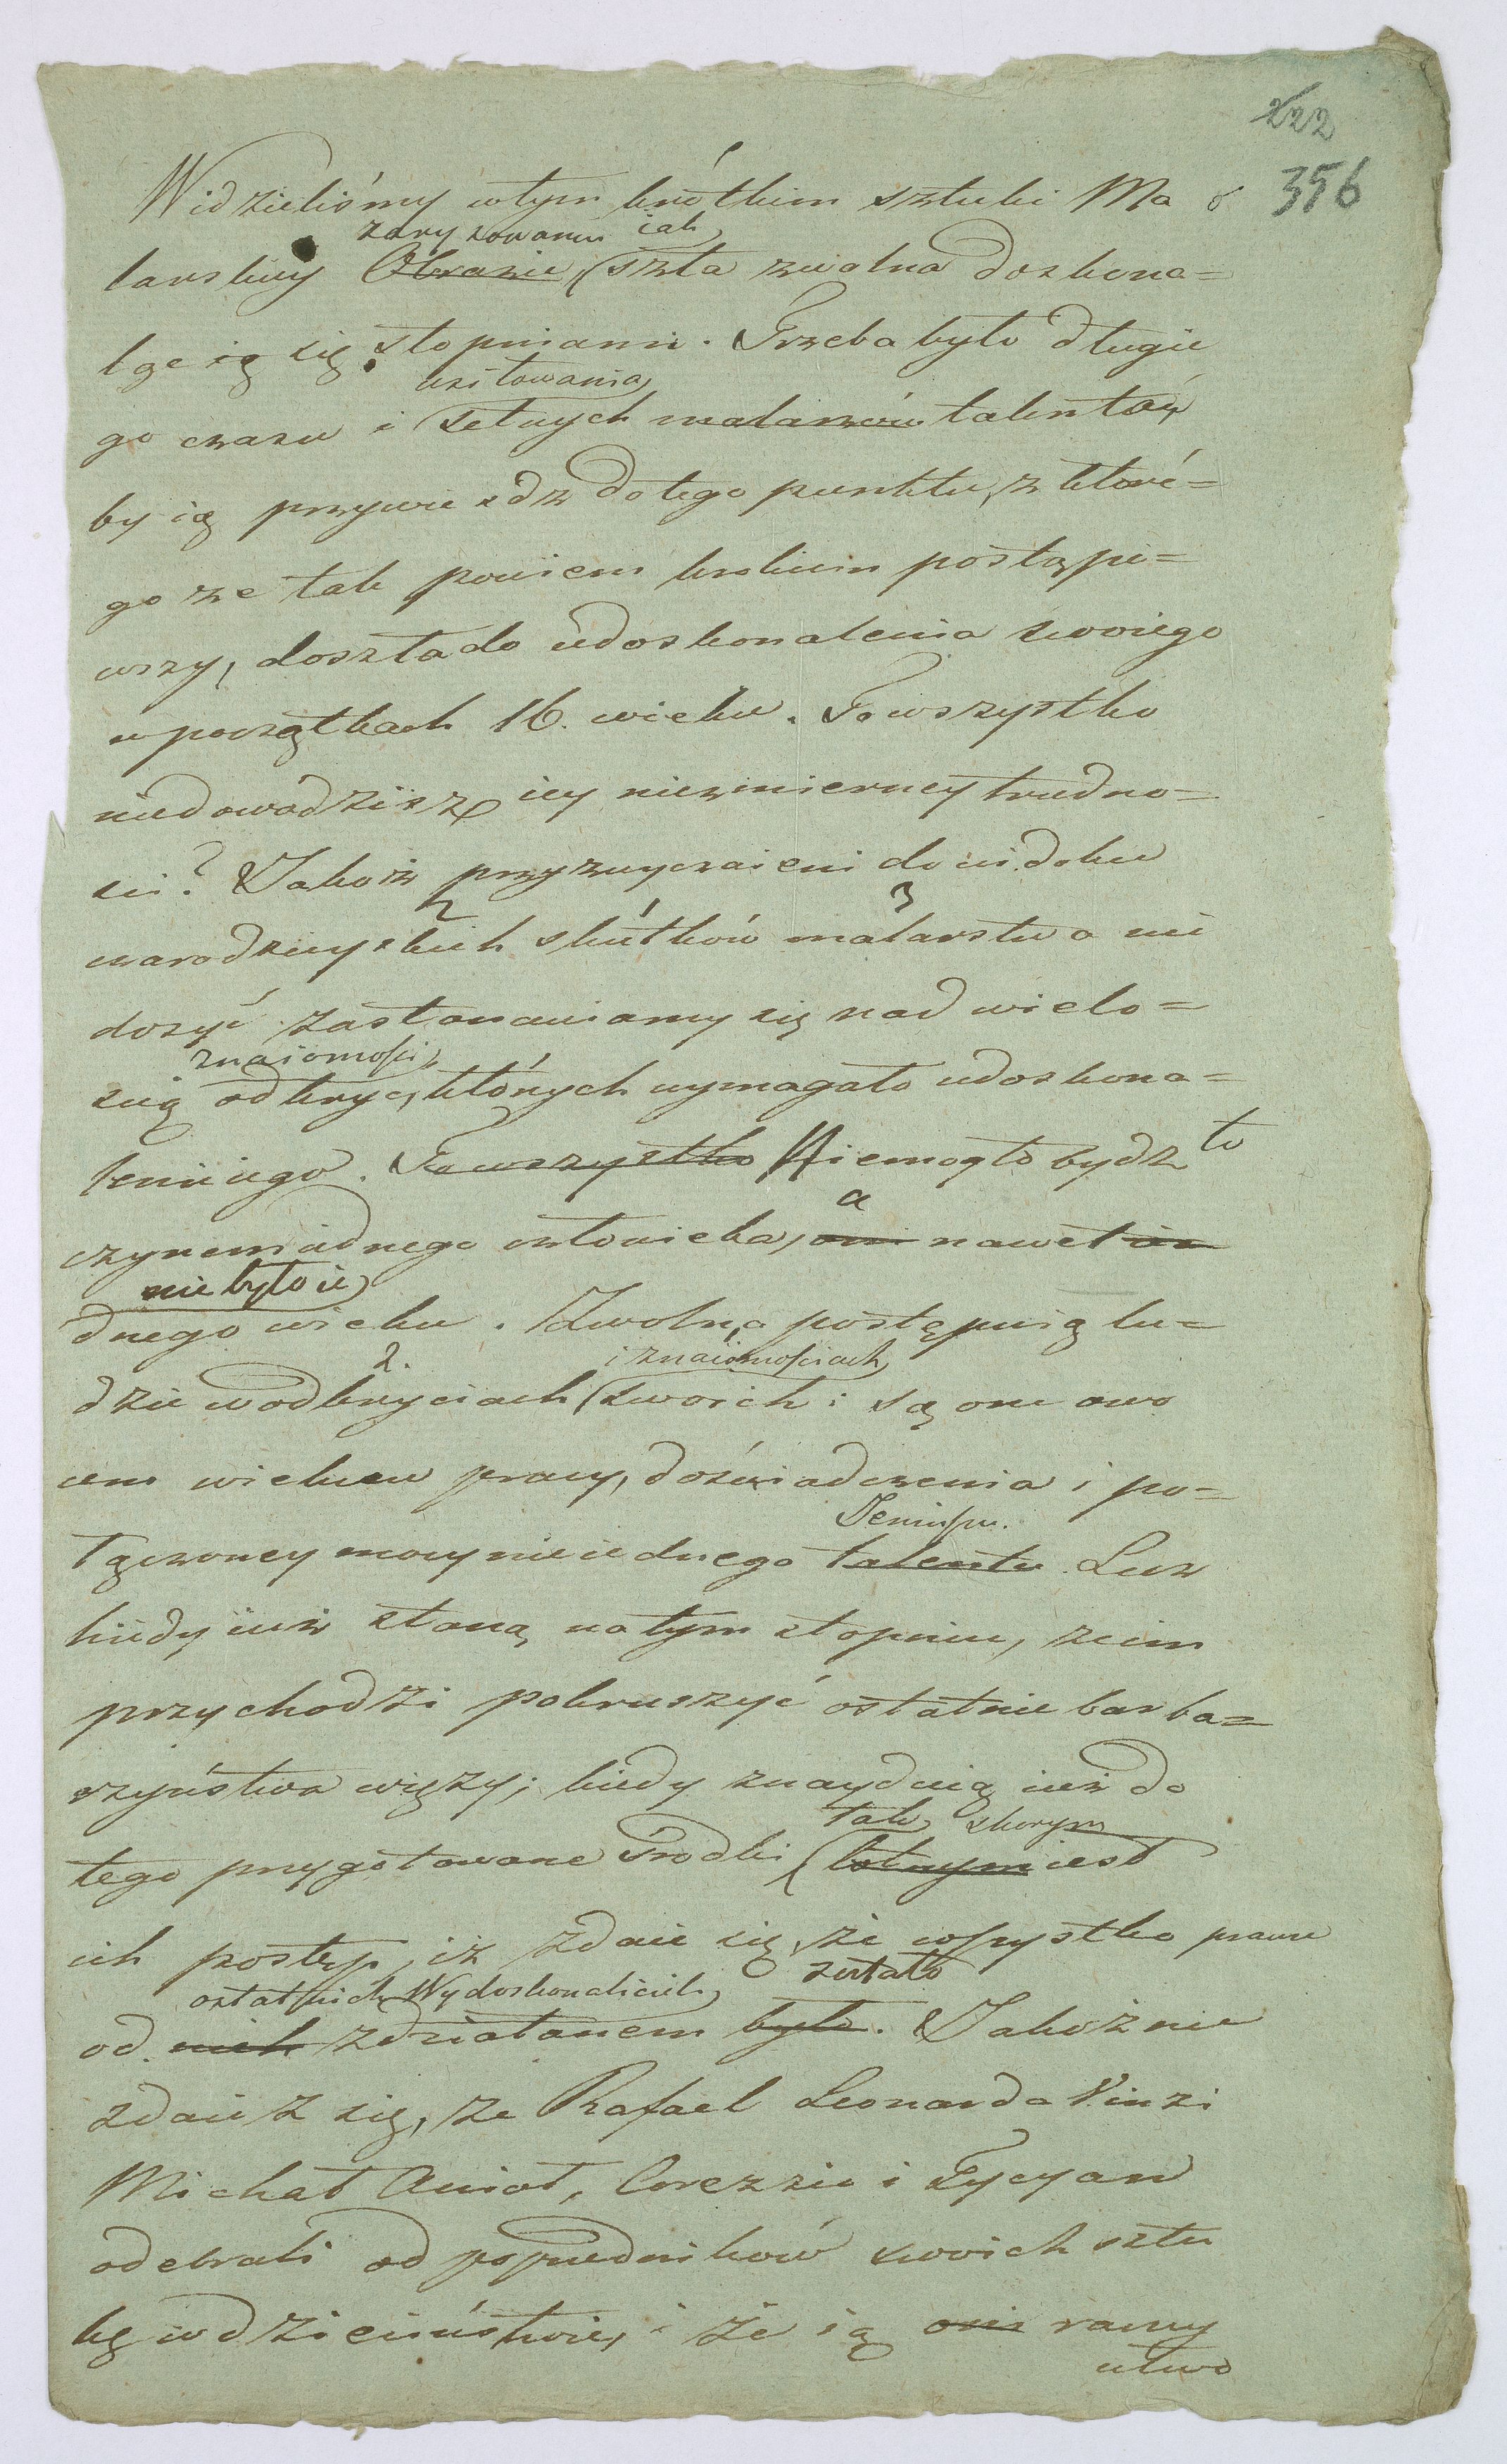 222
356
Widzieliśmy w tym krótkim sztuki Ma
zarysowaniu iak
larskiey Obrazie, szła zwolna doskona=
ląc się stopniami. Trzeba było długie
usiłowania
go czasu i setnych malarzów talentów
by ią przywieśdz do tego punktu, z które=
go ze tak powiem krokiem postąpi=
wszy, doszła do udoskonalenia swoiego
w początkach 16. wieku. To wszystko
niedowodzisz iey niezmierney trudno=
sci? Jakoż przyzwyczaieni do widoku
2 1 3
czarodzieyskich skutków malarstwa nie
dosyć zastanawiamy się nad wielo=
znaiomości
scią odkryc, których wymagało udoskona=
lenie iego. To wszystko Niemogło bydz to
a
czynem iednego człowieka, ani nawet ie
nie było ie
dnego wieku. Zwolna postępuią lu=
2. i znaiomościach
dzie w odkryciach swoich i są one owo
cem wieków pracy, doświadczenia i po=
Jeniuszu.
łączoney mocy nie iednego talentu. Lecz
kiedy iuż staną na tym stopniu, że im
przychodzi pokruszyć ostatnie barba=
rzyństwa więzy; kiedy znayduią iuż do
tak skorym
tego przygotowane środki lotnym iest
ich postęp, iż zdaie się, że wszystko prawie
ostatnich Wydoskonalicieli zostało
od nich zdziałanem było. Jakoż nie
zdaież się, że Rafael Leonard a Vinzi
Michał Anioł, Corezzio i Tycyan
odebrali od poprzedników swoich sztu
kę w dzieciństwie, i że ią oni razwy
utwo